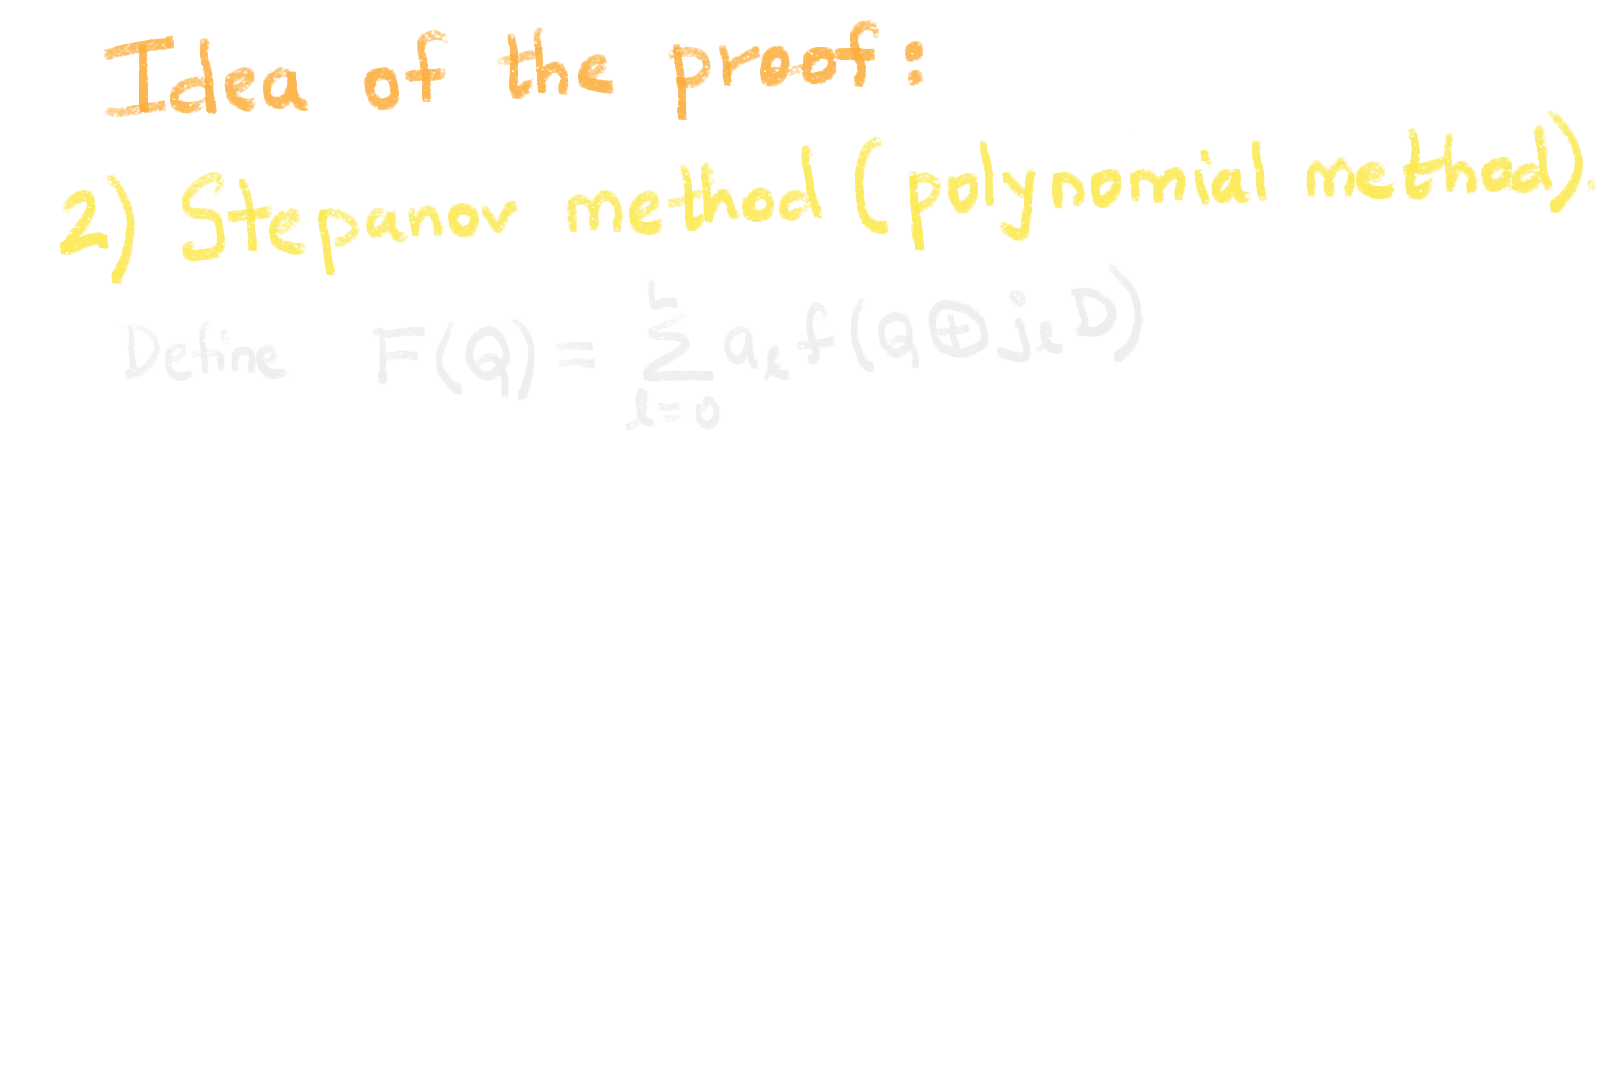 Idea of the proof:
2) Stepanov method (polynomial method).
Define F(Q) = \sum_{l=0}^{r} a_l f(Q ⊕ j_l D)